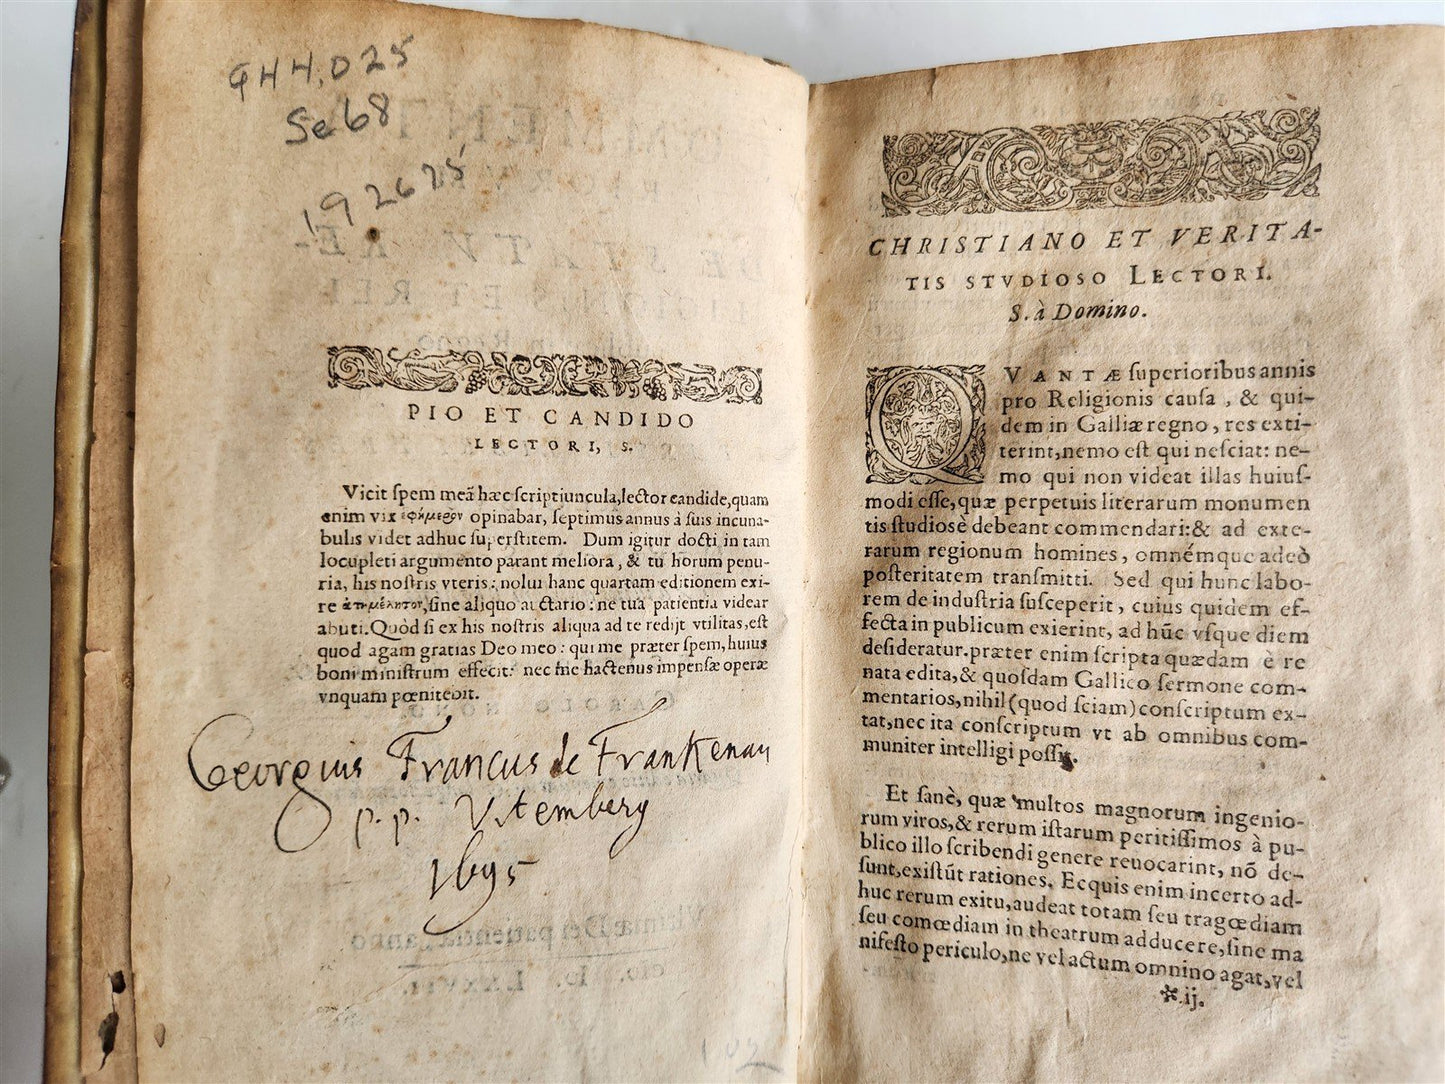 944.025
Se68
192625
PIO ET CANDIDO
LECTORI, S.
Vicit spem meã hæc scriptiuncula, lector candide, quam
enim vix ἐφήμερον opinabar, septimus annus à suis incuna-
bulis videt adhuc superstitem. Dum igitur docti in tam
locupleti argumento parant meliora, & tu horum penu-
ria, his nostris vteris: nolui hanc quartam editionem exi-
re ἀτημέλητον, sine aliquo auctario: ne tua patientia videar
abuti. Quòd si ex his nostris aliqua ad te redijt vtilitas, est
quod agam gratias Deo meo: qui me præter spem, huius
boni ministrum effecit: nec me hactenus impensæ operæ
vnquam pœnitebit.
Georgius Francus de Frankenau
p.p. Vitemberg
1695
CHRISTIANO ET VERITA-
TIS STVDIOSO LECTORI.
S. à Domino.
QVANTÆ superioribus annis
pro Religionis causa, & qui-
dem in Galliæ regno, res exti-
terint, nemo est qui nesciat: ne-
mo qui non videat illas huius-
modi esse, quæ perpetuis literarum monumen
tis studiosè debeant commendari: & ad exte-
rarum regionum homines, omnémque adeò
posteritatem transmitti. Sed qui hunc labo-
rem de industria susceperit, cuius quidem ef-
fecta in publicum exierint, ad hũc vsque diem
desideratur. præter enim scripta quædam è re
nata edita, & quosdam Gallico sermone com-
mentarios, nihil (quod sciam) conscriptum ex-
tat, nec ita conscriptum vt ab omnibus com-
muniter intelligi possit.
Et sanè, quæ multos magnorum ingenio-
rum viros, & rerum istarum peritissimos à pu-
blico illo scribendi genere reuocarint, nõ de-
sunt, existũt rationes. Ecquis enim incerto ad-
huc rerum exitu, audeat totam seu tragœdiam
seu comœdiam in theatrum adducere, sine ma
nifesto periculo, ne vel actum omnino agat, vel
*.ij.